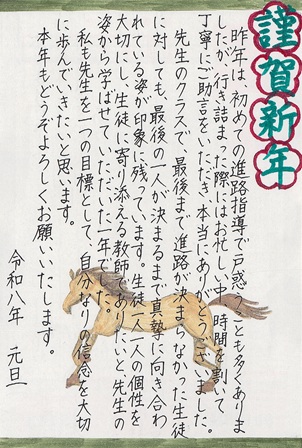 謹賀新年
昨年は、初めての進路指導で戸惑うことも多くありま
したが、行き詰まった際にはお忙しい中、時間を割いて
丁寧にご助言をいただき、本当にありがとうございました。
先生のクラスで、最後まで進路が決まらなかった生徒
に対しても、最後の一人が決まるまで真摯に向き合わ
れている姿が印象に残っています。生徒一人一人の個性を
大切にし、生徒に寄り添える教師でありたいと、先生の
姿から学ばせていただいた一年でした。
私も先生を一つの目標として、自分なりの信念を大切
に歩んでいきたいと思います。
本年もどうぞよろしくお願いいたします。
令和八年 元旦